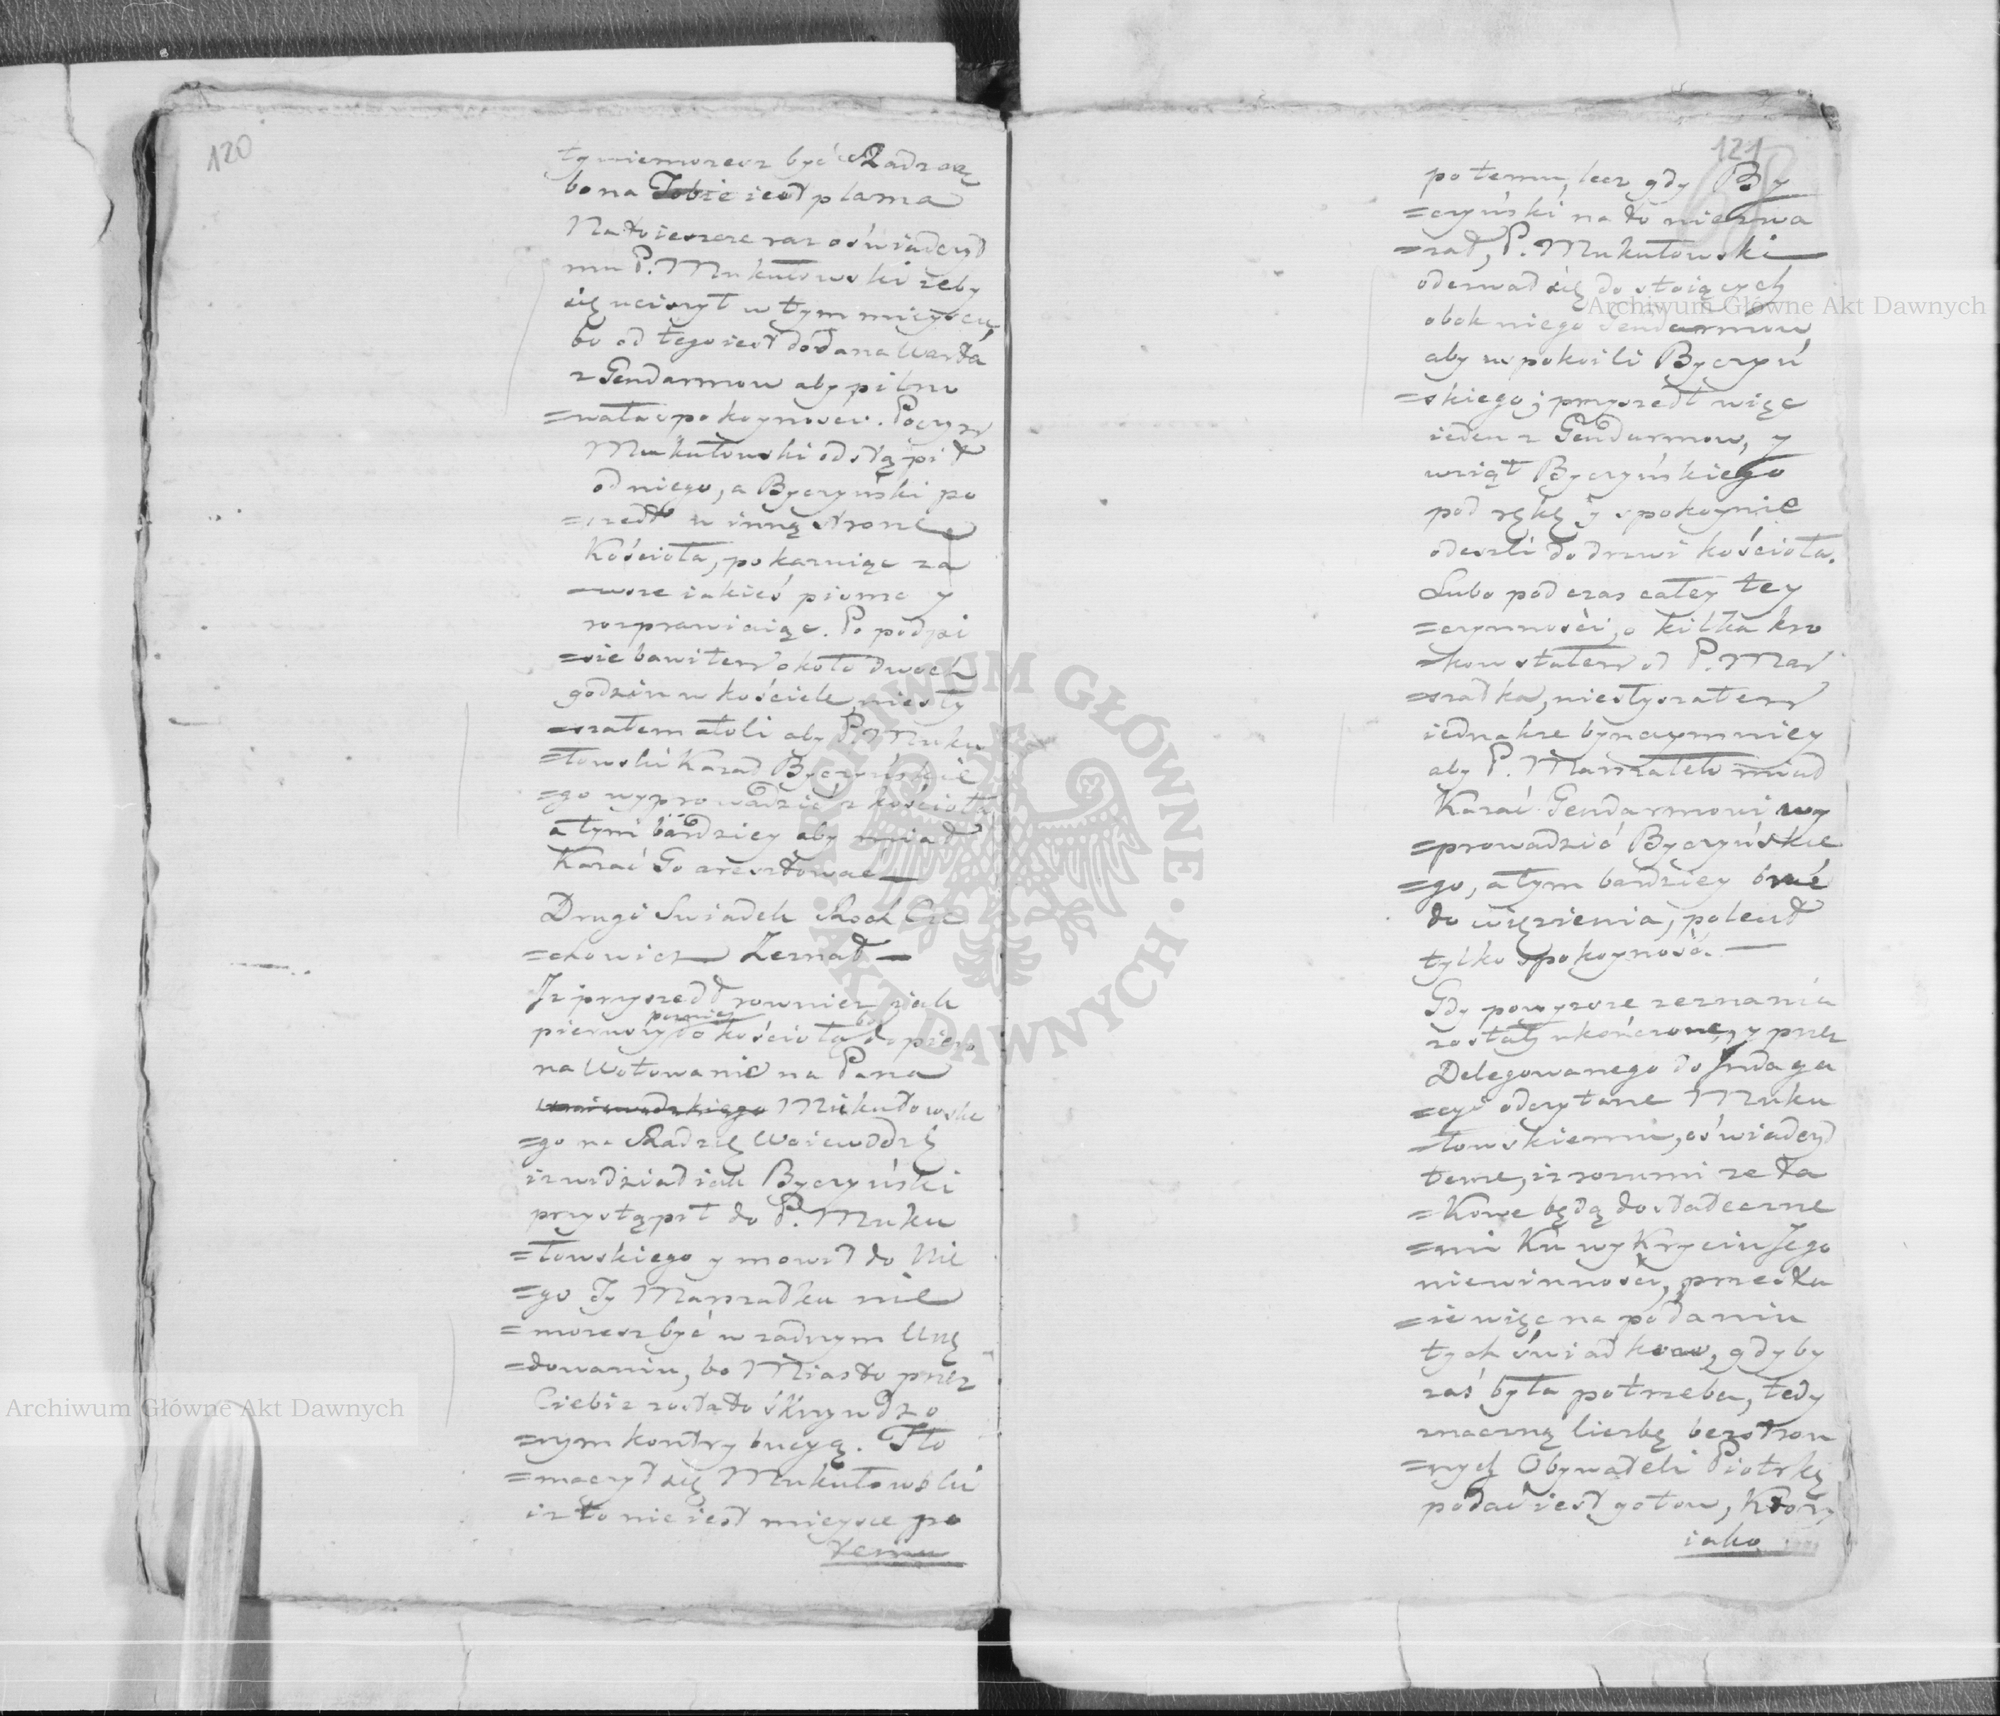 120
ty niemozesz być Radzcą
bo na Tobie iest plama
Na to ieszcze raz oświadczył
mu P. Mukułowski żeby
się uciszył w tym mieyscu,
bo od tego iest dodana Warta
z Gendarmow aby pilno
=wała spokoynosci. Poczym
Mukułowski odstąpił
od niego, a Byczyński po
=szedł w inną stronę
Kościoła, pokazuiąc za
=wsze iakieś pismo y
rozprawiaiąc. Po podpi
=sie bawiłem około dwoch
godzin w kościele, niesły
=szałem atoli aby P. Muku
=łowski Kazał Byczyńskie
=go wyprowadzić z kościoła,
a tym bardziey aby miał
Kazać Go aresztować —
Drugi Swiadek Roch Cze
=chowicz Zeznał —
Iż przyszedł rownież iak
pierwszy do kościoła dopiero
na Wotowanie na Pana
Mukułowskie
=go na Radzcę Woiewodz:
iż widział iak Byczyński
przystąpił do P. Muku
=łowskiego y mowił do Nie
=go Ty Marszałku nie
=mozesz być w żadnym Urzę
=dowaniu, bo Miasto przez
Ciebie zostało skrzywdzo
=nym kontrybucyą. Tło
=maczył się Mukułowski
iż to nie iest mieysce po
temu
121
potemu, lecz gdy By
=czyński na to nie zwa
=żał, P. Mukułowski
odezwał się do stoiących
obok niego Gendarmow,
aby uspokoili Byczyń
=skiego; przyszedł więc
ieden z Gendarmow, y
wziął Byczyńskiego
pod rękę y spokoynie
odeszli do drzwi kościoła.
Lubo podczas całey tey
=czynności, o kilka kro
=kow stałem od P. Mar
=szałka, niesłyszałem
iednakże bynaymniey
aby P. Marszałek miał
Kazać Gendarmowi wy
=prowadzić Byczyńskie
=go, a tym bardziey brać
do więzienia, polecił
tylko spokoyność. —
Gdy powyższe zeznania
zostały ukończone, y przez
Delegowanego do Indaga
=cyi odczytane Muku
=łowskiemu, oświadczył
tenże, iż rozumi że ta
=Kowe będą dostateczne
=mi Ku wyKryciu Jego
niewinności, przesta
=ie więc na podaniu
tych świadkow, gdyby
zaś była potrzeba, tedy
znaczną liczbę bezstron
=nych Obywateli Piotrkę
podać iest gotow, Ktorzy
iako
Archiwum Główne Akt Dawnych
Archiwum Główne Akt Dawnych
ARCHIWUM GŁÓWNE · AKT DAWNYCH ·